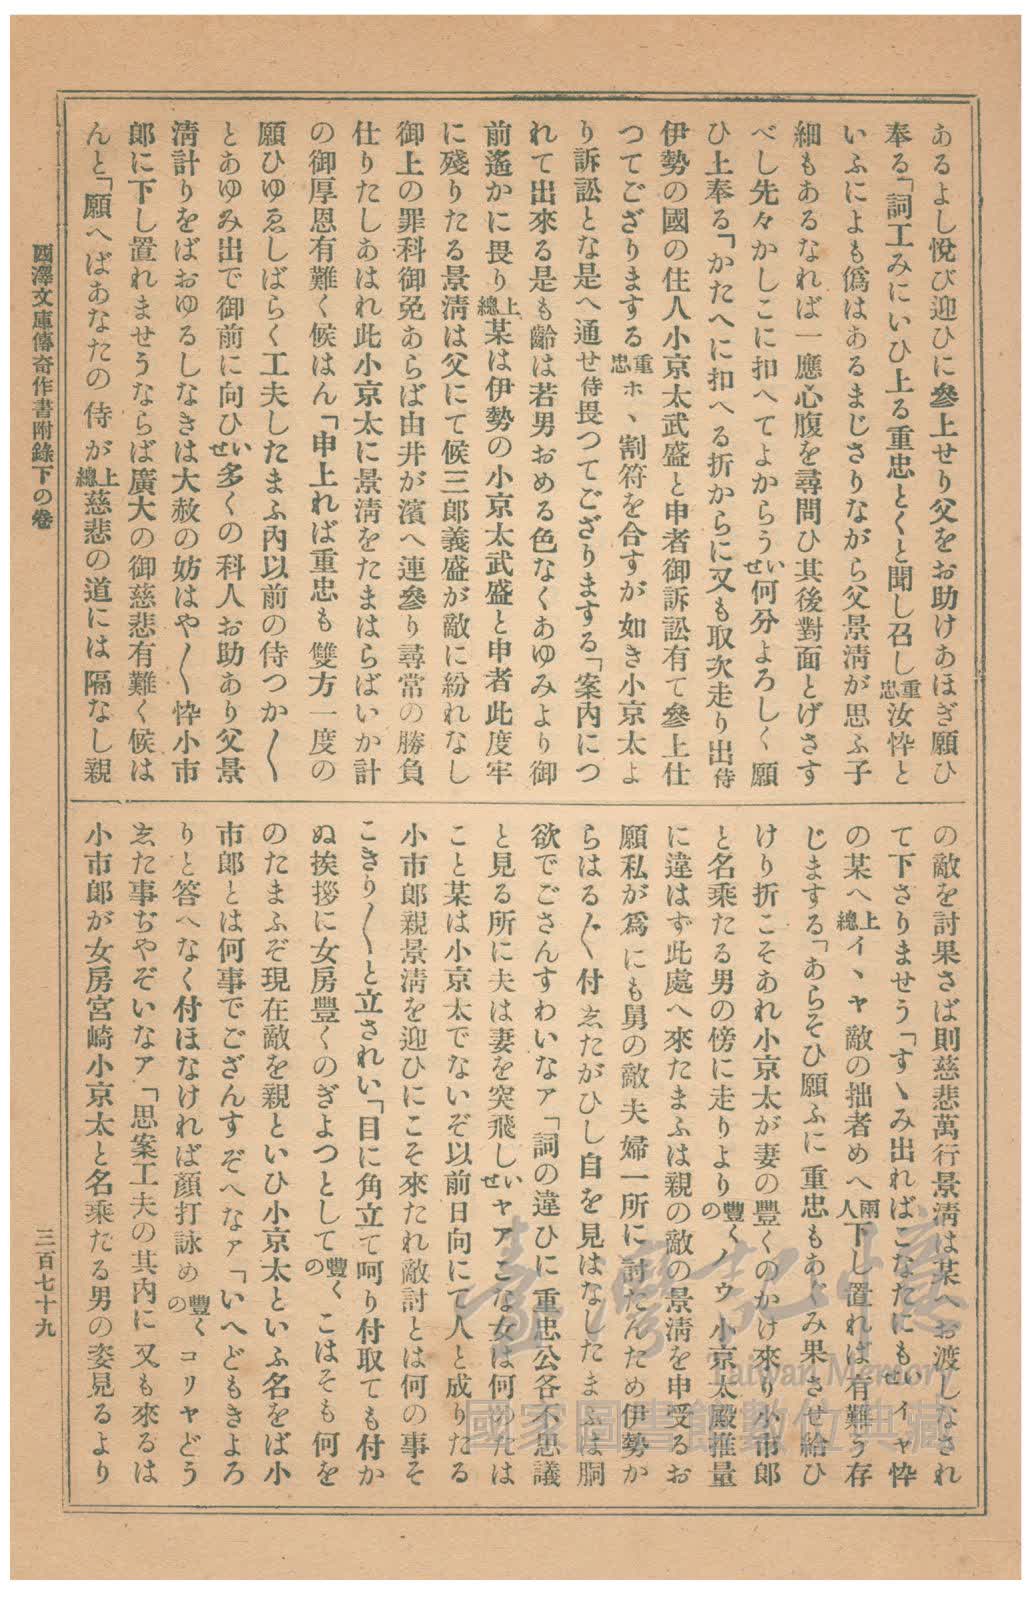 あるよし悅び迎ひに參上せり父をお助けあほぎ願ひ
奉る「詞工みにいひ上る重忠とくと聞し召し重忠汝忰と
いふによも僞はあるまじさりながら父景淸が思ふ子
細もあるなれば一應心腹を尋問ひ其後對面とげさす
べし先々かしこに扣へてよからうせい何分よろしく願
ひ上奉る「かたへに扣へる折からに又も取次走り出侍
伊勢の國の住人小京太武盛と申者御訴訟有て參上仕
つてござりまする重忠ホヽ割符を合すが如き小京太よ
り訴訟とな是へ通せ侍畏つてござりまする「案內につ
れて出來る是も齡は若男おめる色なくあゆみより御
前遙かに畏り上總某は伊勢の小京太武盛と申者此度牢
に殘りたる景淸は父にて候三郞義盛が敵に紛れなし
御上の罪科御免あらば由井が濱へ連參り尋常の勝負
仕りたしあはれ此小京太に景淸をたまはらばいか計
の御厚恩有難く候はん「申上れば重忠も雙方一度の
願ひゆゑしばらく工夫したまふ內以前の侍つか〱
とあゆみ出で御前に向ひせい多くの科人お助あり父景
淸計りをばおゆるしなきは大赦の妨はや〱忰小市
郞に下し置れませうならば廣大の御慈悲有難く候は
んと「願へばあなたの侍が上總慈悲の道には隔なし親
の敵を討果さば則慈悲萬行景淸は某へお渡しなされ
て下さりませう「すゝみ出ればこなたにもせいイヤ忰
の某へ上總イヽヤ敵の拙者めへ兩人下し置れば有難う存
じまする「あらそひ願ふに重忠もあぐみ果させ給ひ
けり折こそあれ小京太が妻の豐くのかけ來り小市郞
と名乘たる男の傍に走りより豐くのノウ小京太殿推量
に違はず此處へ來たまふは親の敵の景淸を申受るお
願私が爲にも舅の敵夫婦一所に討たんため伊勢か
らはる〲付ゑたがひし自を見はなしたまふは胴
欲でごさんすわいなァ「詞の違ひに重忠公各不思議
と見る所に夫は妻を突飛しせいヤアこな女は何のたは
こと某は小京太でないぞ以前日向にて人と成りたる
小市郞親景淸を迎ひにこそ來たれ敵討とは何の事そ
こきり〱と立されい「目に角立て呵り付取ても付か
ぬ挨拶に女房豐くのぎよつとして豐くのこはそも何を
のたまふぞ現在敵を親といひ小京太といふ名をば小
市郞とは何事でござんすぞへなァ「いへどもきよろ
りと答へなく付ほなければ顏打詠め豐くのコリヤどう
ゑた事ぢやぞいなァ「思案工夫の其內に又も來るは
小市郞が女房宮崎小京太と名乘たる男の姿見るより
西澤文庫傳奇作書附錄下の卷
三百七十九
臺灣記憶
Taiwan Memory
國家圖書館數位典藏